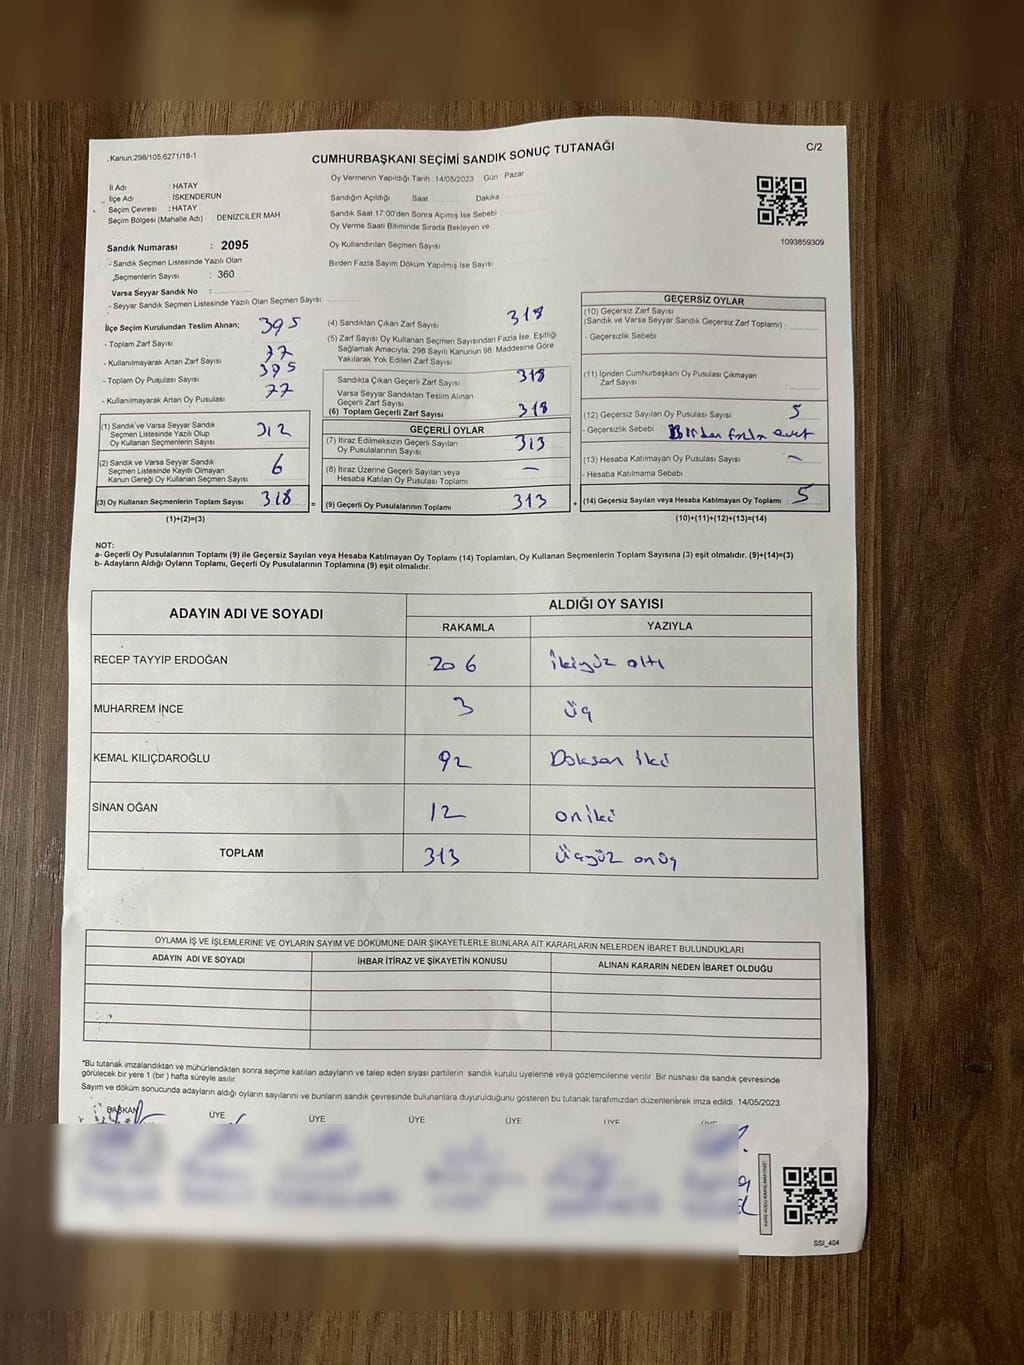 Kanun:298/105,6271/18-1
CUMHURBAŞKANI SEÇİMİ SANDIK SONUÇ TUTANAĞI
C/2
Oy Vermenin Yapıldığı Tarih :14/05/2023 Gün : Pazar
İl Adı : HATAY
İlçe Adı : İSKENDERUN
Seçim Çevresi : HATAY
Seçim Bölgesi (Mahalle Adı) : DENİZCİLER MAH
Sandığın Açıldığı Saat Dakika
Sandık Saat 17:00'den Sonra Açımış İse Sebebi
Oy Verme Saati Bitiminde Sırada Bekleyen ve
Oy Kullandırılan Seçmen Sayısı
Birden Fazla Sayım Döküm Yapılmış İse Sayısı
1093859309
Sandık Numarası : 2095
- Sandık Seçmen Listesinde Yazılı Olan
Seçmenlerin Sayısı : 360
Varsa Seyyar Sandık No :
- Seyyar Sandık Seçmen Listesinde Yazılı Olan Seçmen Sayısı:
İlçe Seçim Kurulundan Teslim Alınan;
- Toplam Zarf Sayısı 395
- Kullanılmayarak Artan Zarf Sayısı 77
- Toplam Oy Pusulası Sayısı 395
- Kullanılmayarak Artan Oy Pusulası 77
(1) Sandık ve Varsa Seyyar Sandık
Seçmen Listesinde Yazılı Olup
Oy Kullanan Seçmenlerin Sayısı 312
(2) Sandık ve Varsa Seyyar Sandık
Seçmen Listesinde Kayıtlı Olmayan
Kanun Gereği Oy Kullanan Seçmen Sayısı 6
(3) Oy Kullanan Seçmenlerin Toplam Sayısı 318 =
(1)+(2)=(3)
(4) Sandıktan Çıkan Zarf Sayısı 318
(5) Zarf Sayısı Oy Kullanan Seçmen Sayısından Fazla İse, Eşitliği
Sağlamak Amacıyla, 298 Sayılı Kanunun 98. Maddesine Göre
Yakılarak Yok Edilen Zarf Sayısı
Sandıkta Çıkan Geçerli Zarf Sayısı 318
Varsa Seyyar Sandıktan Teslim Alınan
Geçerli Zarf Sayısı
(6) Toplam Geçerli Zarf Sayısı 318
GEÇERLİ OYLAR
(7) İtiraz Edilmeksizin Geçerli Sayılan
Oy Pusulalarının Sayısı 313
(8) İtiraz Üzerine Geçerli Sayılan veya
Hesaba Katılan Oy Pusulası Toplamı —
(9) Geçerli Oy Pusulalarının Toplamı 313 +
GEÇERSİZ OYLAR
(10) Geçersiz Zarf Sayısı
(Sandık ve Varsa Seyyar Sandık Geçersiz Zarf Toplamı) :
- Geçersizlik Sebebi
(11) İçinden Cumhurbaşkanı Oy Pusulası Çıkmayan
Zarf Sayısı
(12) Geçersiz Sayılan Oy Pusulası Sayısı 5
- Geçersizlik Sebebi : Birden fazla evet
(13) Hesaba Katılmayan Oy Pusulası Sayısı —
- Hesaba Katılmama Sebebi
(14) Geçersiz Sayılan veya Hesaba Katılmayan Oy Toplamı 5
(10)+(11)+(12)+(13)=(14)
NOT:
a- Geçerli Oy Pusulalarının Toplamı (9) ile Geçersiz Sayılan veya Hesaba Katılmayan Oy Toplamı (14) Toplamları, Oy Kullanan Seçmenlerin Toplam Sayısına (3) eşit olmalıdır. (9)+(14)=(3)
b- Adayların Aldığı Oyların Toplamı, Geçerli Oy Pusulalarının Toplamına (9) eşit olmalıdır.
ADAYIN ADI VE SOYADI ALDIĞI OY SAYISI
RAKAMLA YAZIYLA
RECEP TAYYİP ERDOĞAN 206 İkiyüz altı
MUHARREM İNCE 3 üç
KEMAL KILIÇDAROĞLU 92 Doksan iki
SİNAN OĞAN 12 oniki
TOPLAM 313 Üçyüz onüç
OYLAMA İŞ VE İŞLEMLERİNE VE OYLARIN SAYIM VE DÖKÜMÜNE DAİR ŞİKAYETLERLE BUNLARA AİT KARARLARIN NELERDEN İBARET BULUNDUKLARI
ADAYIN ADI VE SOYADI İHBAR İTİRAZ VE ŞİKAYETİN KONUSU ALINAN KARARIN NEDEN İBARET OLDUĞU
*Bu tutanak imzalandıktan ve mühürlendikten sonra seçime katılan adayların ve talep eden siyasi partilerin sandık kurulu üyelerine veya gözlemcilerine verilir. Bir nüshası da sandık çevresinde
görülecek bir yere 1 (bir ) hafta süreyle asılır.
Sayım ve döküm sonucunda adayların aldığı oyların sayılarını ve bunların sandık çevresinde bulunanlara duyurulduğunu gösteren bu tutanak tarafımızdan düzenlenerek imza edildi. 14/05/2023
BAŞKAN ÜYE ÜYE ÜYE ÜYE ÜYE ÜYE
KARE KODU KARALAMAYINIZ!
SSI_404